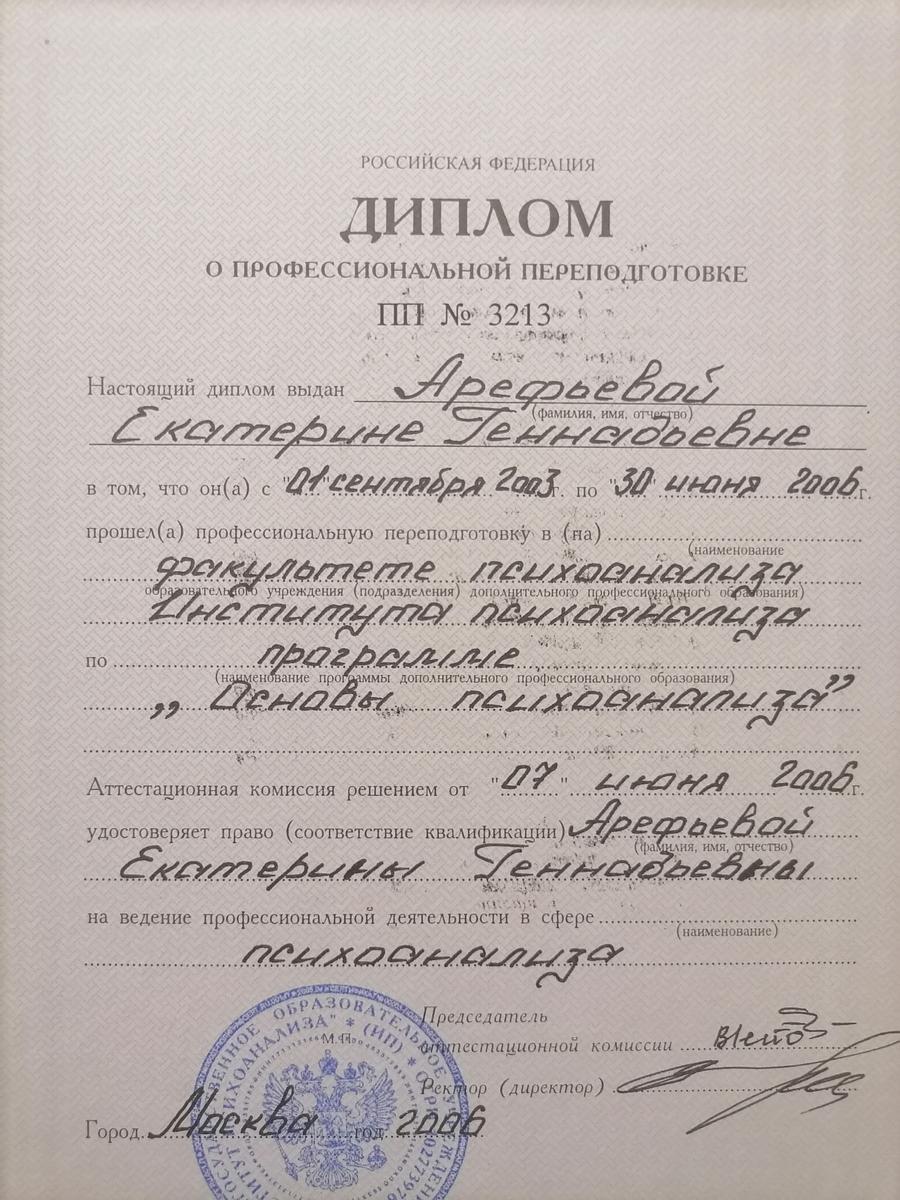 РОССИЙСКАЯ ФЕДЕРАЦИЯ
ДИПЛОМ
О ПРОФЕССИОНАЛЬНОЙ ПЕРЕПОДГОТОВКЕ
ПП № 3213
Настоящий диплом выдан Арефьевой
(фамилия, имя, отчество)
Екатерине Геннадьевне
в том, что он(а) с "01" сентября 2003 г. по "30" июня 2006 г.
прошел(а) профессиональную переподготовку в (на)
(наименование
факультете психоанализа
образовательного учреждения (подразделения) дополнительного профессионального образования)
Института психоанализа
по программе
(наименование программы дополнительного профессионального образования)
„Основы психоанализа”
Аттестационная комиссия решением от "07" июня 2006 г.
удостоверяет право (соответствие квалификации) Арефьевой
(фамилия, имя, отчество)
Екатерины Геннадьевны
на ведение профессиональной деятельности в сфере
(наименование)
психоанализа
Председатель
М.П.
аттестационной комиссии
Ректор (директор)
Город Москва год 2006
ОБРАЗОВАТЕЛЬНОЕ
ПСИХОАНАЛИЗА" * (ИП) *